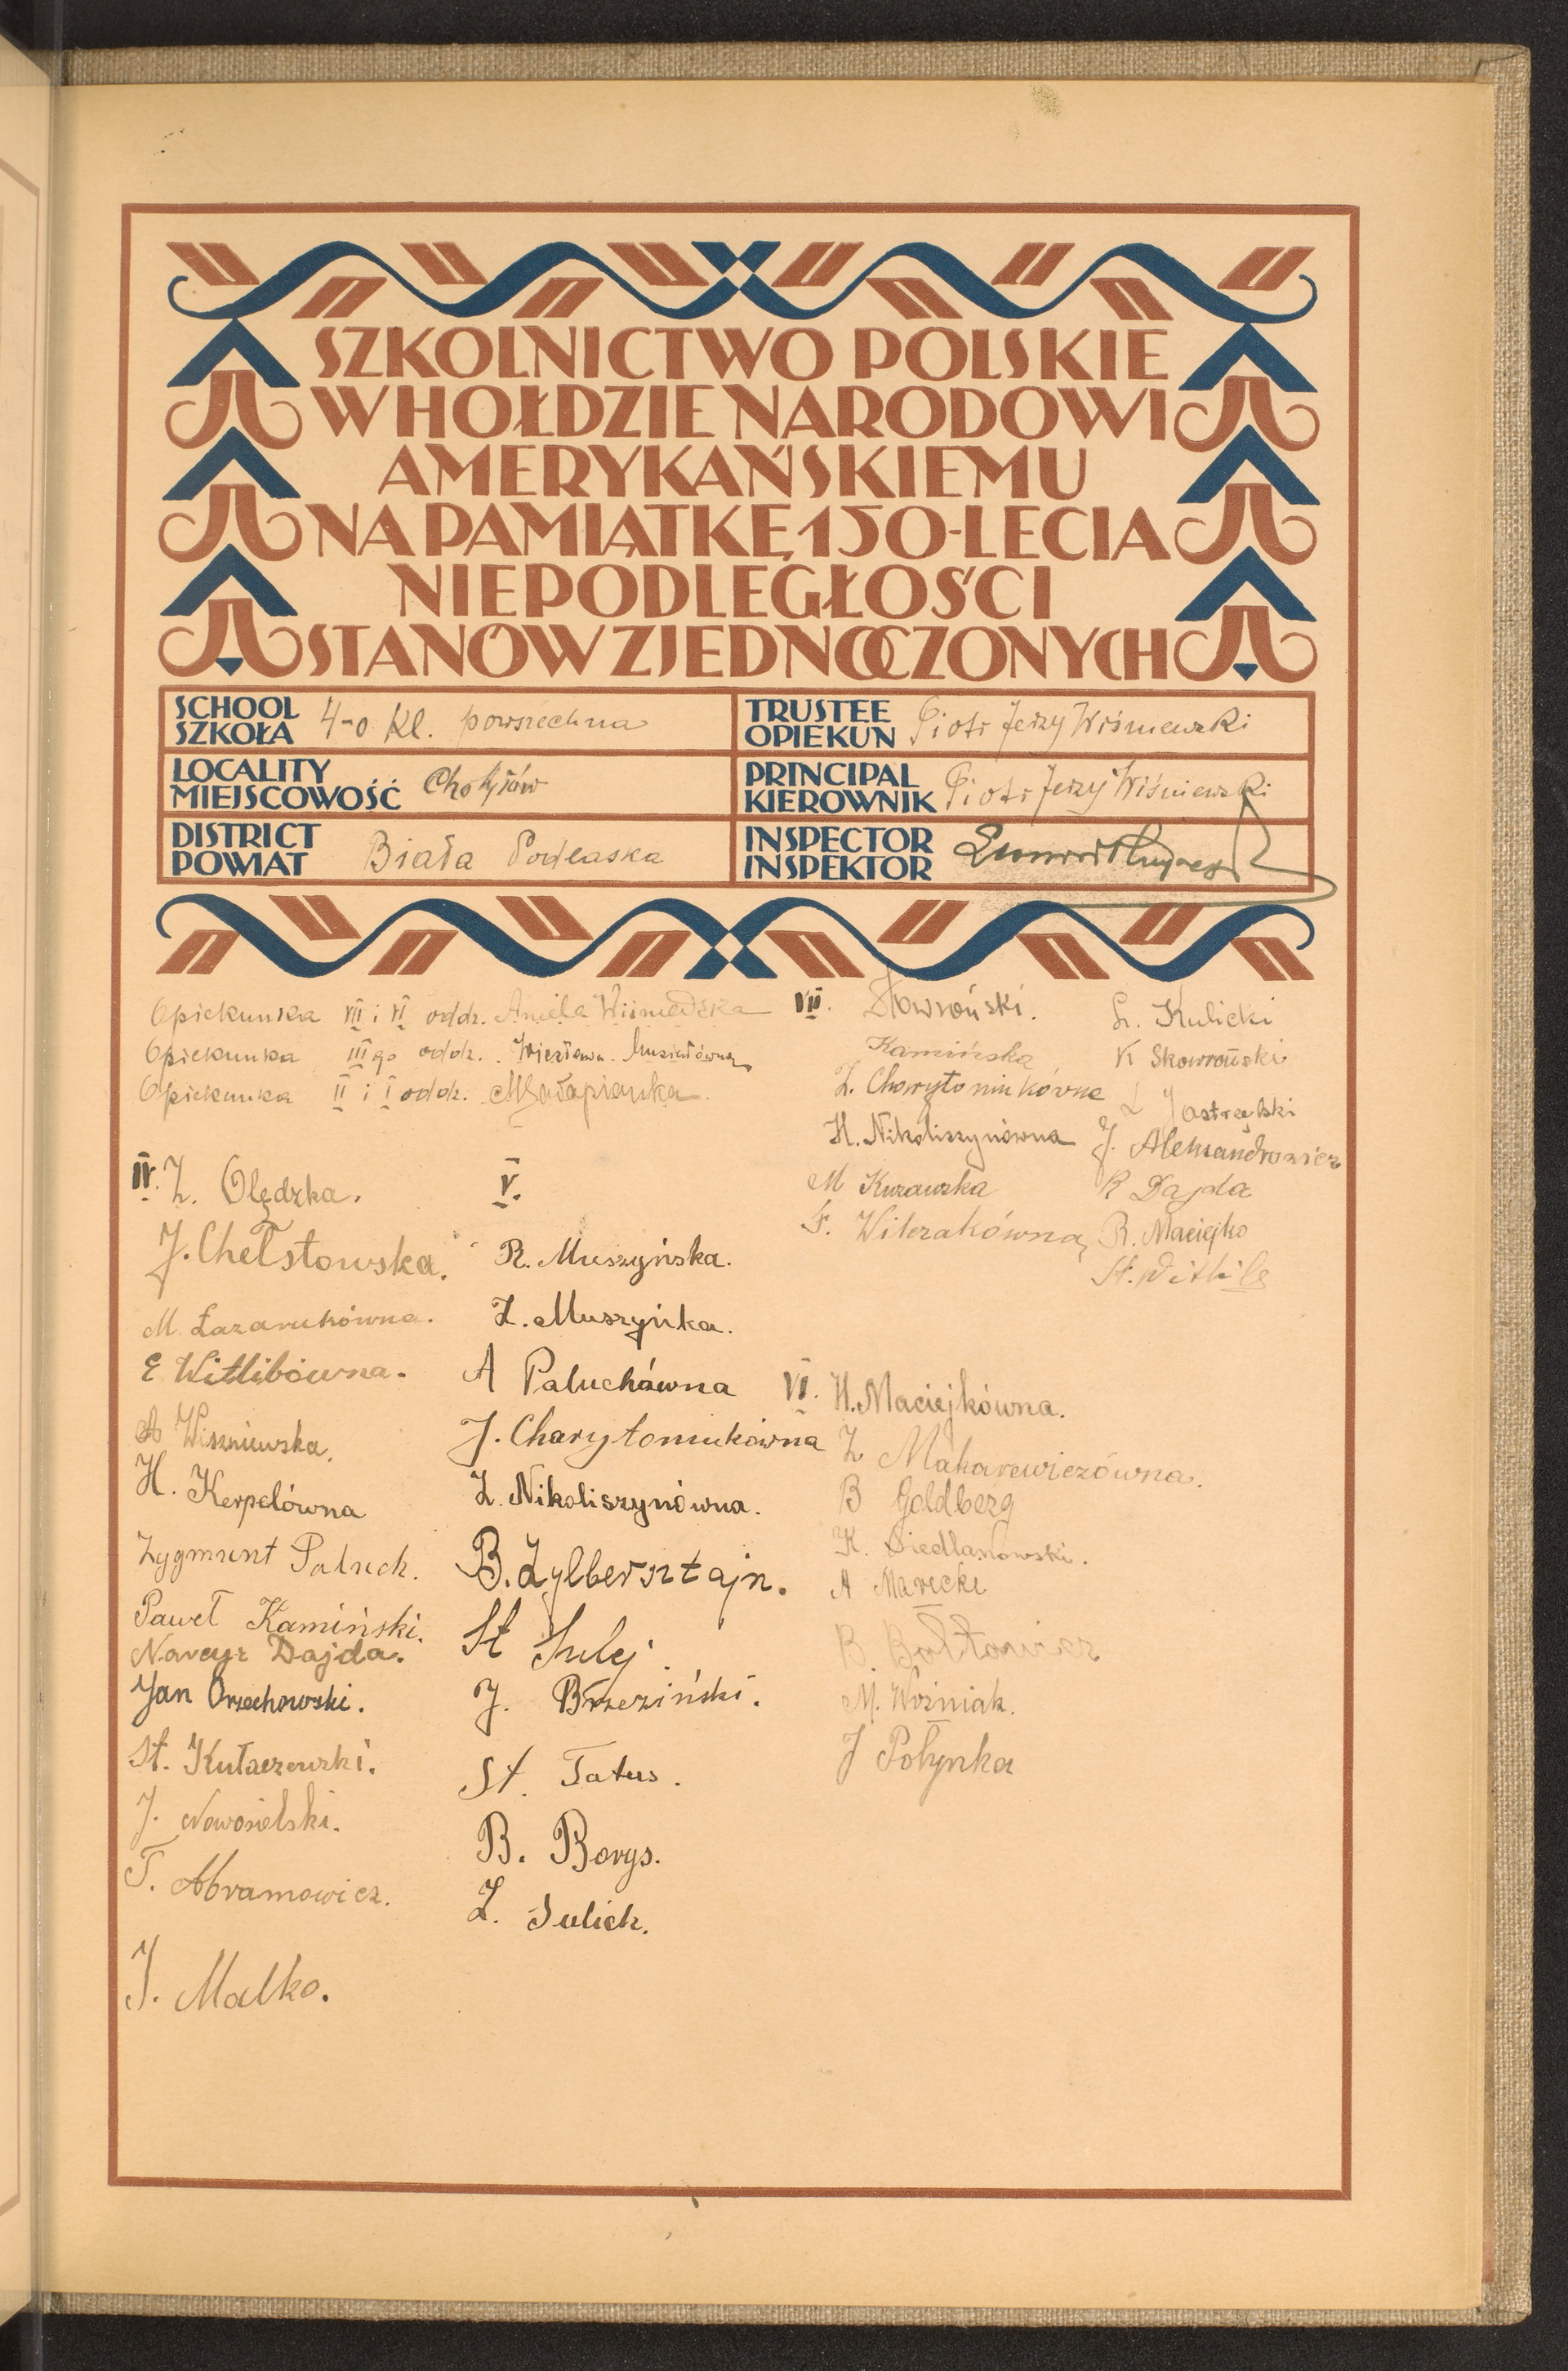 SZKOLNICTWO POLSKIE
W HOŁDZIE NARODOWI
AMERYKAŃSKIEMU
NA PAMIĄTKĘ 150-LECIA
NIEPODLEGŁOŚCI
STANÓW ZJEDNOCZONYCH
SCHOOL
SZKOŁA 4-o Kl. powszechna
TRUSTEE
OPIEKUN Piotr Jerzy Wiśniewski
LOCALITY
MIEJSCOWOŚĆ Chotyłów
PRINCIPAL
KIEROWNIK Piotr Jerzy Wiśniewski
DISTRICT
POWIAT Biała Podlaska
INSPECTOR
INSPEKTOR
Opiekunka VII i VI oddz. Aniela Wiśniewska
Opiekunka III go oddz. Wiesława
Opiekunka II i I oddz.
IV. Z. Olędzka.
J. Chełstowska.
M. Łazarukówna.
E Witlibówna.
A Wiszniewska.
H. Kerpelówna
Zygmunt Paluch.
Paweł Kamiński.
Narcyz Dajda.
Jan Orzechowski.
St. Kułaczewski.
J. Nowosielski.
T. Abramowicz.
J. Malko.
V.
R. Muszyńska.
Z. Muszyńka.
A Paluchówna
J. Charytoniukówna
Z. Nikoliszynówna.
B. Zylbersztajn.
St Sulej.
J. Brzeziński.
St. Tatus.
B. Borys.
Z. Julich.
VII. Słowroński.
Kamińska
Z. Charytoniukówna
H. Nikoliszynówna
M Kurawska
F. Witezakówna
Kulicki
K Skowroński
L Jastrzębski
J. Aleksandrowicz
R Dajda
R. Maciejko
St. Witlib
VI. H. Maciejkówna.
Z Makarewiczówna.
B Goldberg
K. Siedlanowski.
A Marecki
B. Bołtowicz
M. Woźniak.
J Połynka